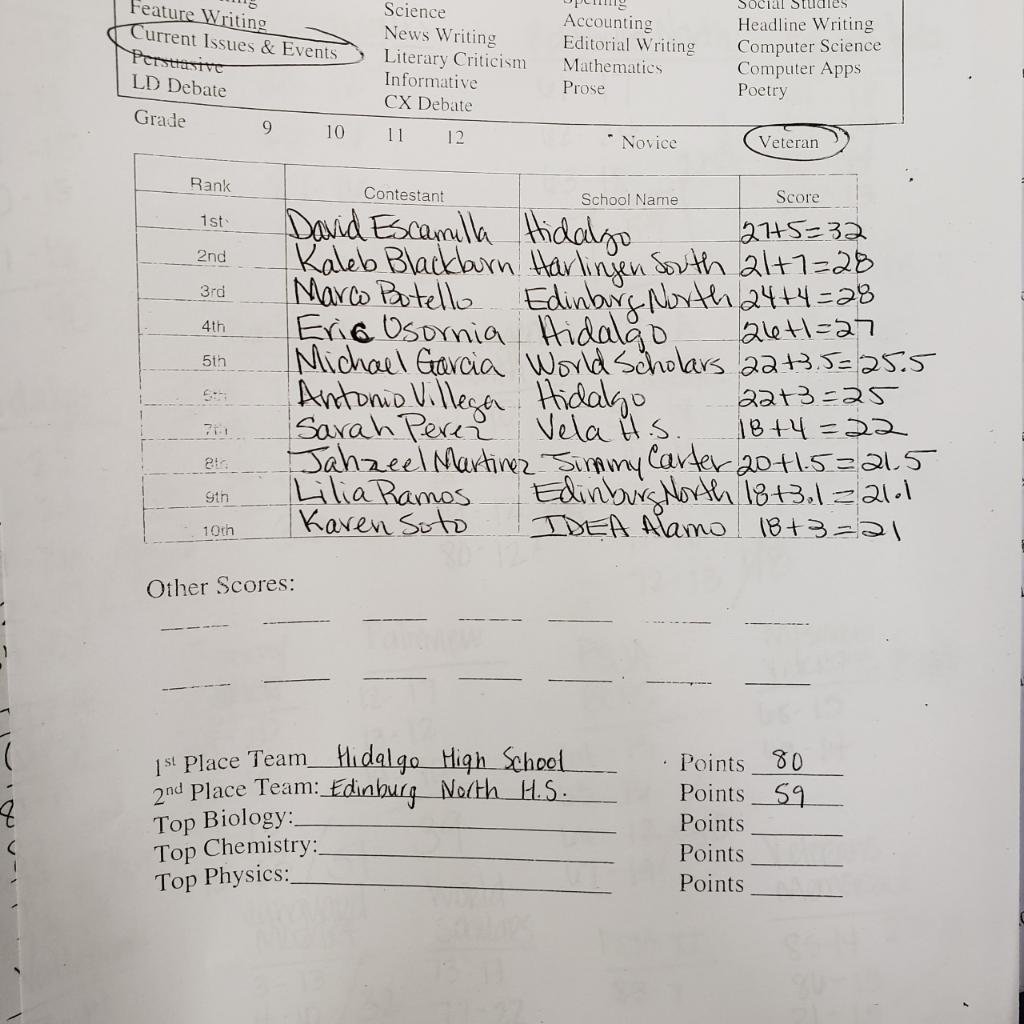 Social Studies
Feature Writing Science Accounting Headline Writing
Current Issues & Events News Writing Editorial Writing Computer Science
Persuasive Literary Criticism Mathematics Computer Apps
LD Debate Informative Prose Poetry
CX Debate
Grade 9 10 11 12 Novice Veteran
Rank Contestant School Name Score
1st David Escamilla Hidalgo 27+5=32
2nd Kaleb Blackburn Harlingen South 21+7=28
3rd Marco Botello Edinburg North 24+4=28
4th Eric Osornia Hidalgo 26+1=27
5th Michael Garcia World Scholars 22+3.5=25.5
6th Antonio Villega Hidalgo 22+3=25
7th Sarah Perez Vela H.S. 18+4=22
8th Jahzeel Martinez Jimmy Carter 20+1.5=21.5
9th Lilia Ramos Edinburg North 18+3.1=21.1
10th Karen Soto IDEA Alamo 18+3=21
Other Scores:
1st Place Team Hidalgo High School Points 80
2nd Place Team: Edinburg North H.S. Points 59
Top Biology: Points
Top Chemistry: Points
Top Physics: Points